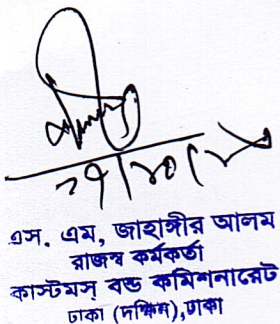 এস. এম, জাহাঙ্গীর আলম
রাজস্ব কর্মকর্তা
কাস্টমস্ বন্ড কমিশনারেট
ঢাকা (দক্ষিন),ঢাকা